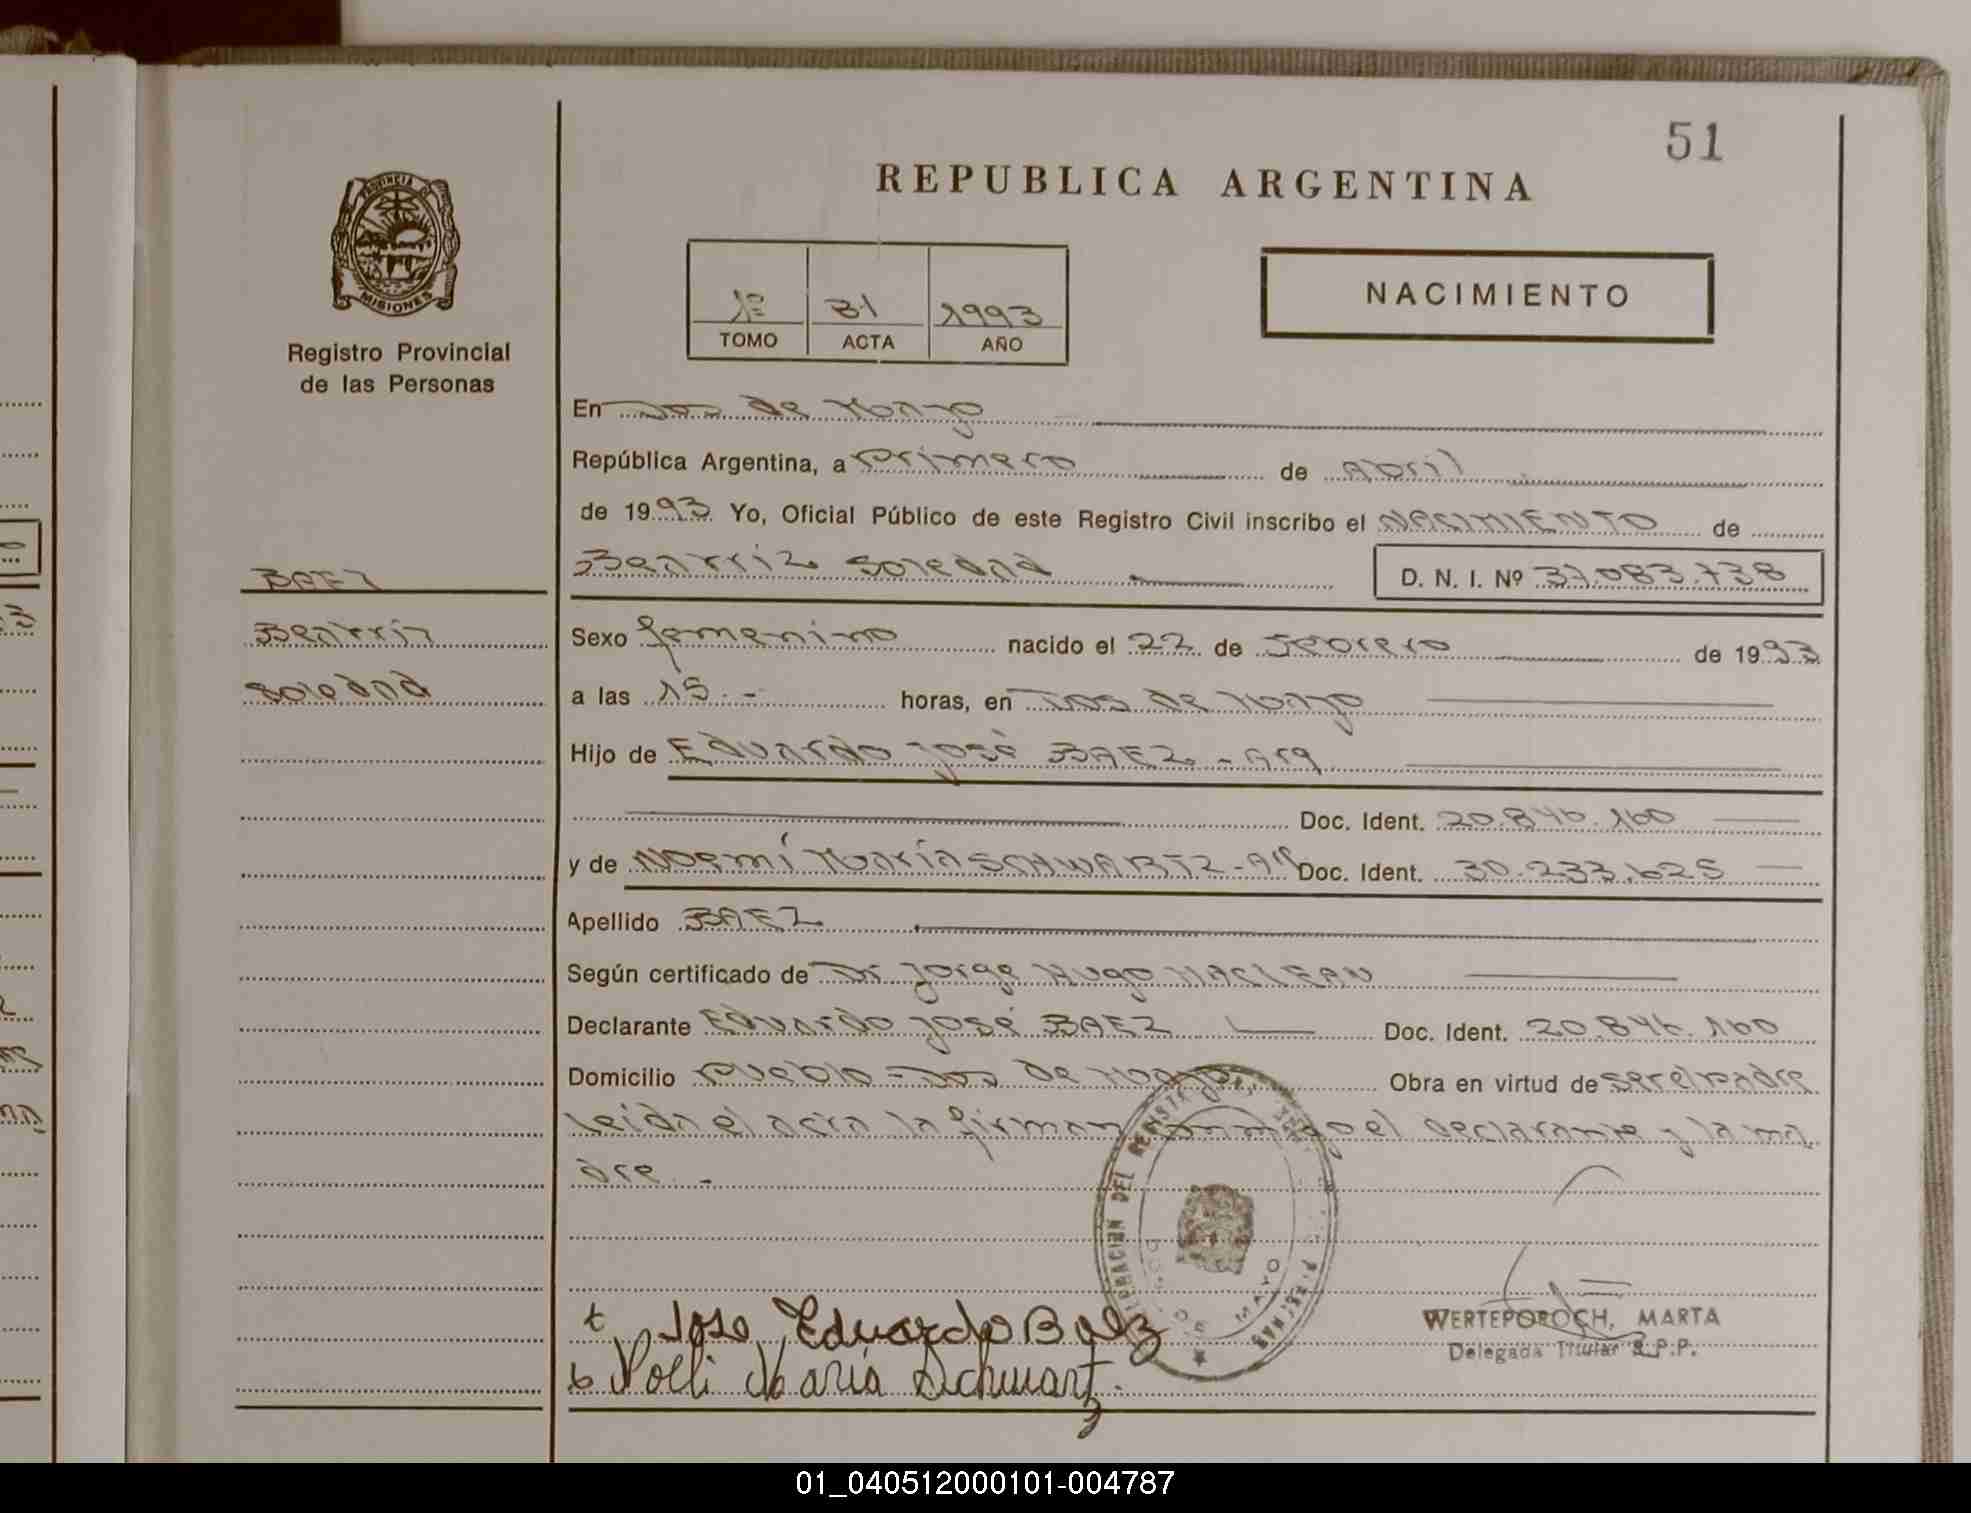 51
REPUBLICA ARGENTINA
PROVINCIA DE
MISIONES
Registro Provincial
de las Personas
1º 31 1993
TOMO ACTA AÑO
NACIMIENTO
En Dos de Mayo
República Argentina, a primero de Abril
de 1993 Yo, Oficial Público de este Registro Civil inscribo el NACIMIENTO de
Beatriz Soledad D. N. I. Nº 37.083.738
BAEZ
Beatriz
Soledad
Sexo femenino nacido el 22 de Febrero de 1993
a las 15.- horas, en Dos de Mayo
Hijo de Eduardo José BAEZ - Arg
Doc. Ident. 20.846.160
y de Noemí María SCHWARTZ - Arg Doc. Ident. 30.233.625
Apellido BAEZ
Según certificado de Dr. Jorge Hugo MACLEAN
Declarante Eduardo José BAEZ Doc. Ident. 20.846.160
Domicilio Pueblo - Dos de Mayo Obra en virtud de ser el padre
Leída el acta la firman conmigo el declarante y la ma
dre.-
DOS DE MAYO
Jose Eduardo Baez
WERTEPOROCH, MARTA
Delegada Titular R.P.P.
Noeli Maria Schwartz
01_040512000101-004787